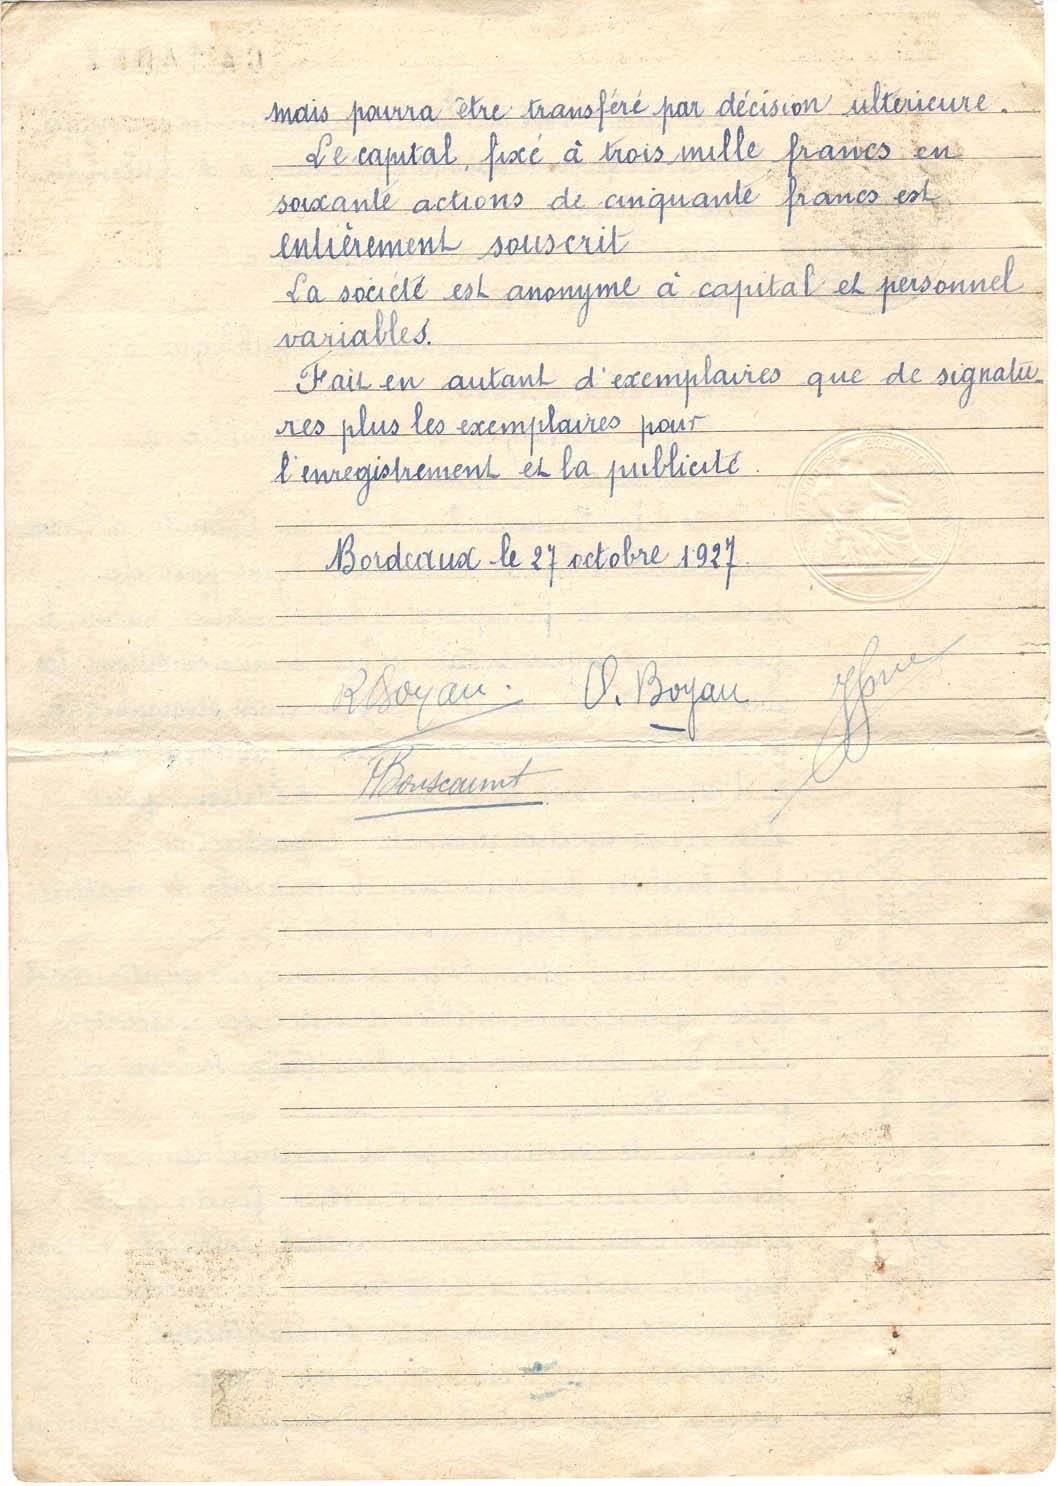 mais pourra être transféré par décision ulterieure.
Le capital, fixé à trois mille francs en
soixante actions de cinquante francs est
entièrement souscrit
La société est anonyme à capital et personnel
variables.
Fait en autant d'exemplaires que de signatu-
res plus les exemplaires pour
l'enregistrement et la publicité.
Bordeaux le 27 octobre 1927.
R Boyau. O. Boyau